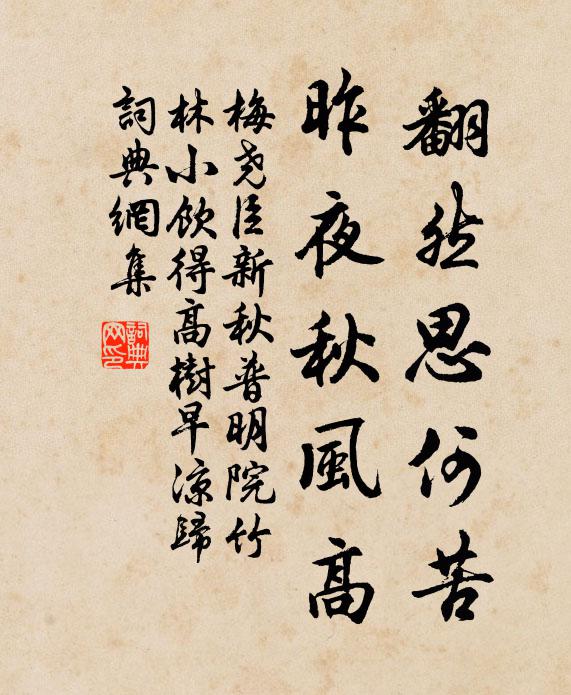 翻然思何苦
昨夜秋風高
梅堯臣新秋普明院竹
林小飲得高樹早涼歸
詞典網集
詞典网印